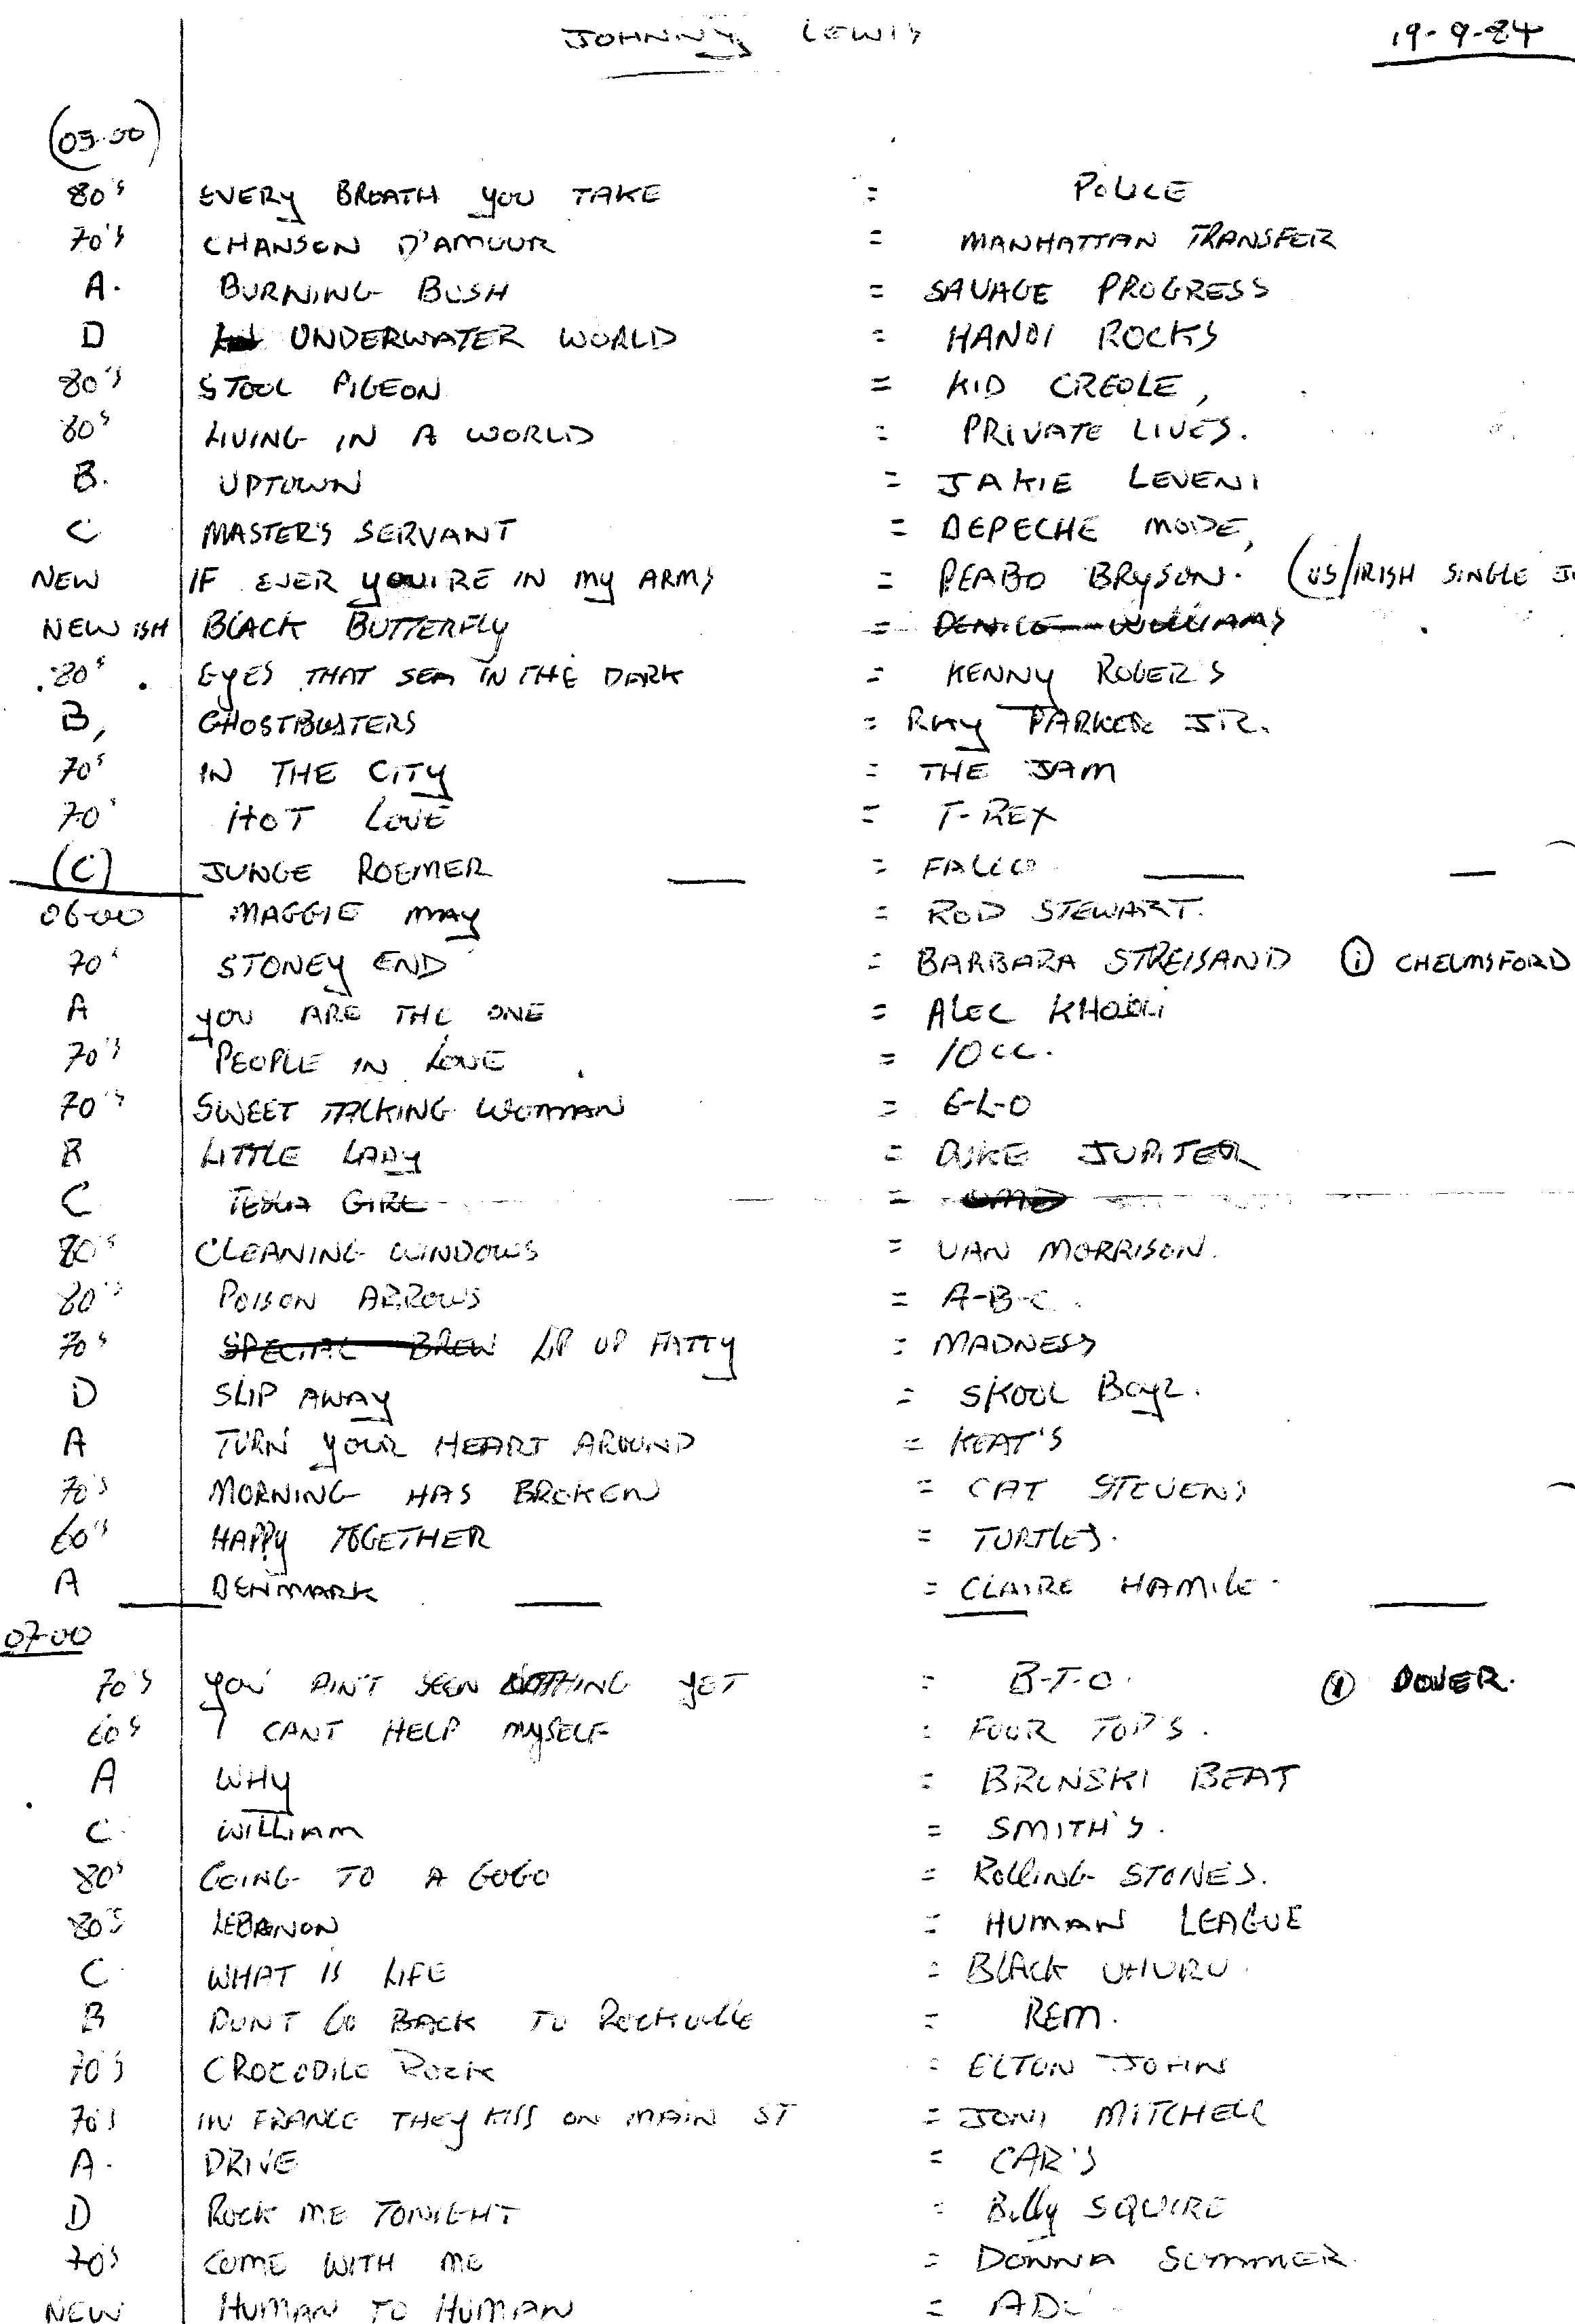 JOHNNY LEWIS 19-9-84
(05.00)
80'S EVERY BREATH YOU TAKE = POLICE
70'S CHANSON D'AMOUR = MANHATTAN TRANSFER
A. BURNING BUSH = SAVAGE PROGRESS
D UNDERWATER WORLD = HANOI ROCKS
80'S STOOL PIGEON = KID CREOLE,
80'S LIVING IN A WORLD = PRIVATE LIVES.
B. UPTOWN = JAKIE LEVENI
C MASTER'S SERVANT = DEPECHE MODE,
NEW IF EVER YOU'RE IN MY ARMS = PEABO BRYSON. (US/IRISH SINGLE
NEWISH BLACK BUTTERFLY = DENICE WILLIAMS
80'S EYES THAT SEE IN THE DARK = KENNY ROGER'S
B, GHOSTBUSTERS = RAY PARKER JR.
70'S IN THE CITY = THE JAM
70' HOT LOVE = T-REX
(C) JUNGE ROEMER = FALCO
06-00 MAGGIE MAY = ROD STEWART.
70'S STONEY END = BARBARA STREISAND (i) CHELMSFORD
A YOU ARE THE ONE = ALEC
70'S PEOPLE IN LOVE = 10CC.
70'S SWEET TALKING WOMAN = E-L-O
B LITTLE LADY = DUKE JUPITER
C TESLA GIRL = OMD
80'S CLEANING WINDOWS = VAN MORRISON.
80'S POISON ARROWS = A-B-C.
70'S SPECIAL BREW LIP UP FATTY = MADNESS
D SLIP AWAY = SKOOL BOYZ.
A TURN YOUR HEART AROUND = KEAT'S
70'S MORNING HAS BROKEN = CAT STEVENS
60'S HAPPY TOGETHER = TURTLES.
A DENMARK = CLAIRE HAMILE.
07-00
70'S YOU AIN'T SEEN NOTHING YET = B-T-O. DOVER.
60'S I CANT HELP MYSELF = FOUR TOP'S.
A WHY = BRONSKI BEAT
C WILLIAM = SMITH'S.
80'S GOING TO A GOGO = ROLLING STONES.
80'S LEBANON = HUMAN LEAGUE
C WHAT IS LIFE = BLACK UHURU.
B DONT GO BACK TO ROCKVILLE = REM.
70'S CROCODILE ROCK = ELTON JOHN
70'S IN FRANCE THEY KISS ON MAIN ST = JONI MITCHELL
A. DRIVE = CAR'S
D ROCK ME TONIGHT = BILLY SQUIRE
70'S COME WITH ME = DONNA SUMMER.
NEW HUMAN TO HUMAN =